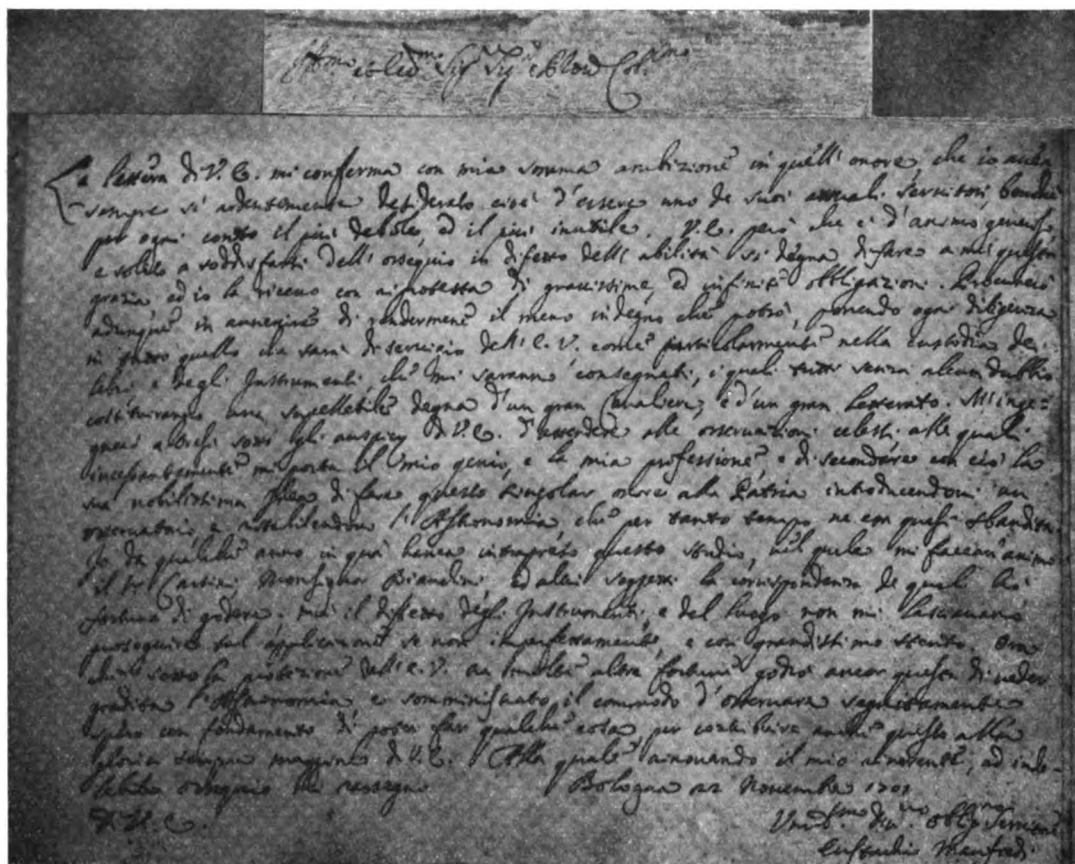 La lettera di V. E. mi conferma con mia somma ambizione in quell' onore che io avea
sempre sì ardentemente desiderato cioè d'essere uno de suoi attuali servitori, benchè
per ogni conto il più debole, ed il più inutile. V. E. però che è d'animo generoso,
e solito a soddisfarsi dell' ossequio in difetto dell' abilità si degna di fare a me questa
grazia ed io la ricevo con protesta di gravissime, ed infinite obbligazioni. Procurerò
adunque in avvenire di rendermene il meno indegno che potrò, ponendo ogni diligenza
in tutto quello che sarà di servicio dell' E. V. come particolarmente nella custodia de
libri e degli Instrumenti, che mi saranno consegnati, i quali tutti senza alcun dubbio
costituiranno una supelletile degna d'un gran Cavaliere, e d'un gran Letterato. M'inge=
gnerò altresì sotto gli auspicj di V. E. d'attendere alle osservazioni celesti alle quali
incessantemente mi porta il mio genio, e la mia professione, e di secondare con ciò la
sua nobilissima Idea di fare questo singolar onore alla Patria introducendovi un
osservatorio, e ristabilendovi l'Astronomia, che per tanto tempo ne era quasi sbandita.
Io da qualche anno in qua havea intrapreso questo studio, nel quale mi faceano animo
il Sr. Cassini Monsignor Bianchini ed altri soggetti la corrispondenza de quali hò
fortuna di godere. ma il difetto degli Instrumenti, e del luogo non mi lasciavano
proseguire sul applicazione se non imperfettamente, e con grandissimo stento. Ora
che sotto la protezione dell' E. V. tra molte altre fortune godrò ancor questa di veder
gradita l'Astronomia, e somministrato il commodo d'osservare seguitamente
spero con fondamento di poter far qualche cosa, per contribuire anche questo alla
gloria sempre maggiore di V. E. Alla quale rinovando il mio riverente, ed inde-
lebile ossequio mi rassegno Bologna 22 Novembre 1701
Di V. E.
Umil.mo Div.mo Obblig.mo Servitore
Eustachio Manfredi